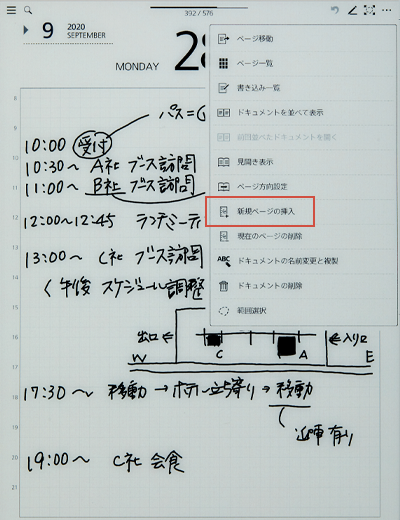 392 / 576
9
2020
SEPTEMBER
MONDAY
28
ページ移動
ページ一覧
書き込み一覧
ドキュメントを並べて表示
前回並べたドキュメントを開く
見開き表示
ページ方向設定
新規ページの挿入
現在のページの削除
ABC ドキュメントの名前変更と複製
ドキュメントの削除
範囲選択
8
9
パス=
10:00 受付
10
10:30~ A社 ブース訪問
11
11:00~ B社 ブース訪問
12
12:00~12:45 ランチミーテ
13
13:00~ C社 ブース訪問
14
午後 スケジュール調整
15
16
出口←
←入り口
W
C
A
E
17
18
17:30~ 移動→ホテル立ち寄り→移動
19
近車有り
20
19:00~ C社 会食
21